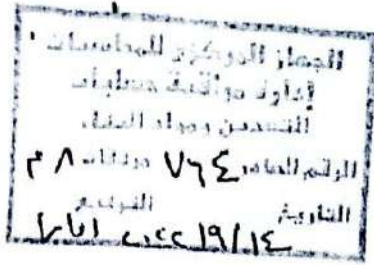 الجهاز المركزي للمحاسبات
إدارة مراقبة حسابات
التعدين ومواد البناء
الرقم العام ٧٦٤ مرفقات ٨ م
التاريخ التوقيع
١٤/٩/٢٠٢٢